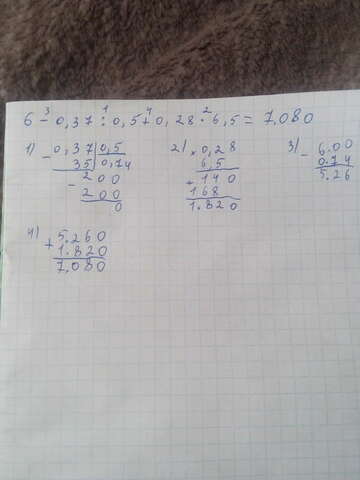 3 1 4 2
6 - 0,37 : 0,5 + 0,28 · 6,5 = 7,080
1) - 0,37 0,5 2) × 0,28 3) - 6.00
35 0,74 6,5 0.74
- 200 + 140 5.26
200 168
0 1.820
4) + 5.260
1.820
7,080